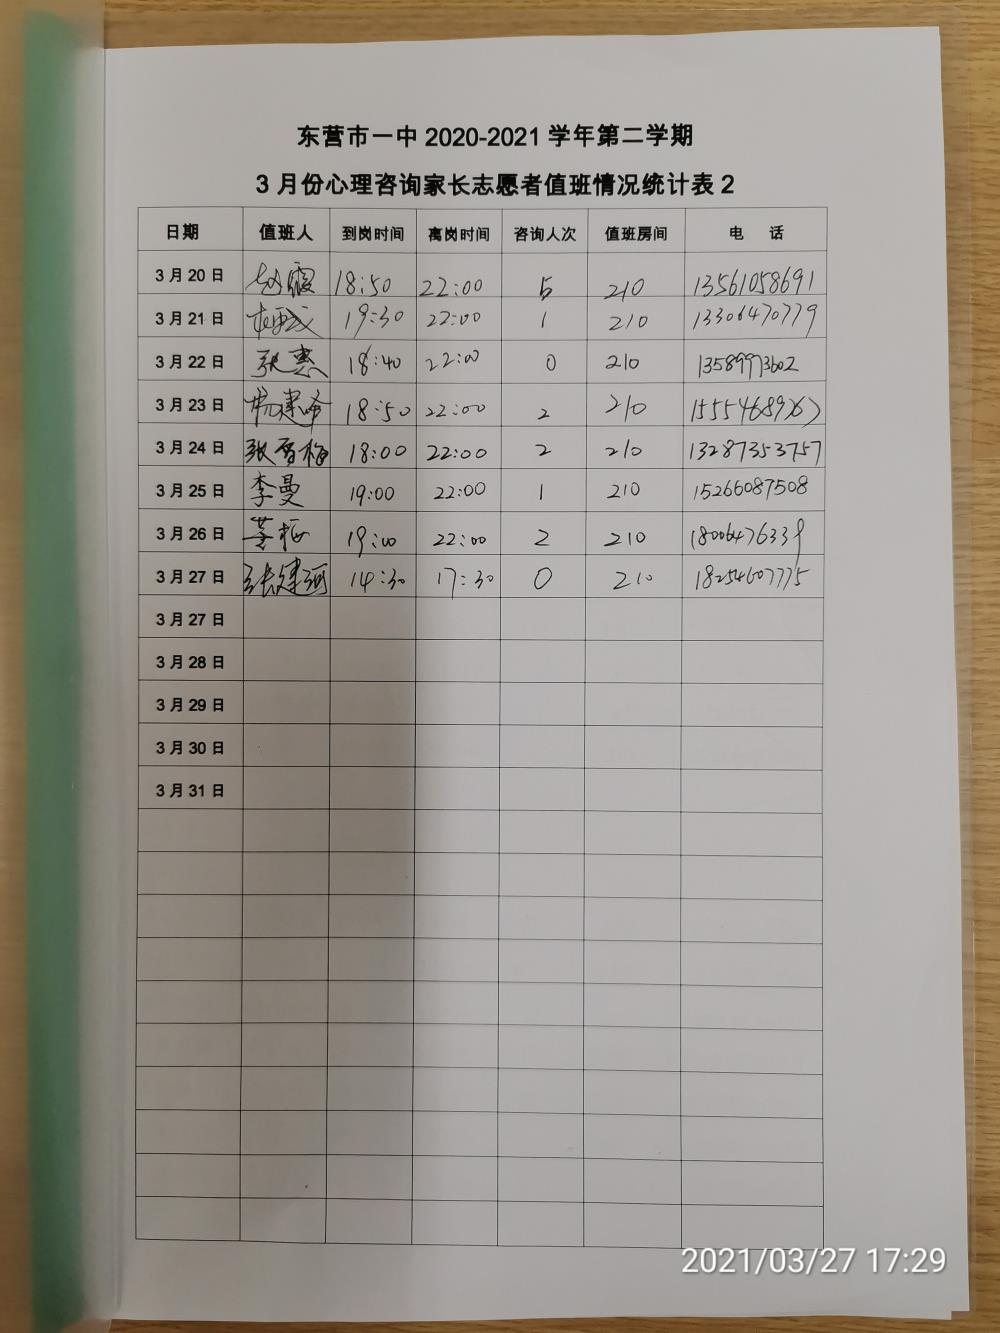 东营市一中 2020-2021 学年第二学期
3 月份心理咨询家长志愿者值班情况统计表 2
日期 值班人 到岗时间 离岗时间 咨询人次 值班房间 电 话
3 月 20 日 赵霞 18:50 22:00 5 210 13561058691
3 月 21 日 19:30 22:00 1 210 13306470779
3 月 22 日 张惠 18:40 22:00 0 210 13589973602
3 月 23 日 杨建峰 18:50 22:00 2 210
3 月 24 日 张雪梅 18:00 22:00 2 210 13287353757
3 月 25 日 李曼 19:00 22:00 1 210 15266087508
3 月 26 日 19:00 22:00 2 210 18006476339
3 月 27 日 张建河 14:30 17:30 0 210 18254607775
3 月 27 日
3 月 28 日
3 月 29 日
3 月 30 日
3 月 31 日
2021/03/27 17:29